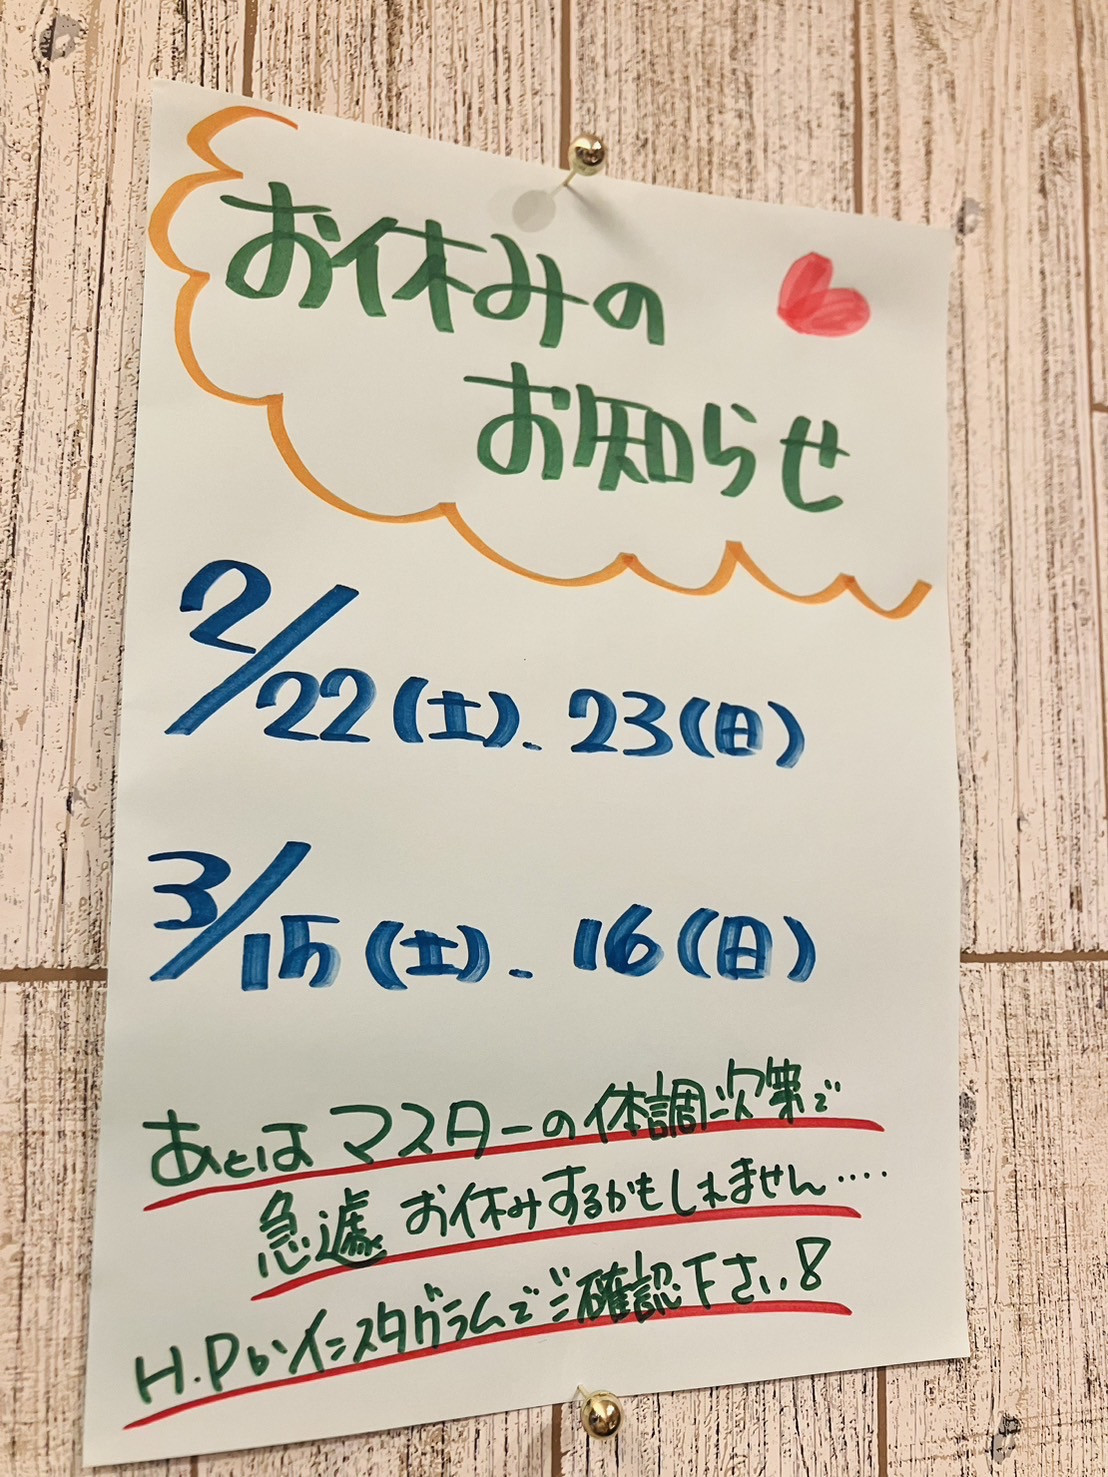 お休みの
お知らせ
2/22(土).23(日)
3/15(土).16(日)
あとはマスターの体調次第で
急遽お休みするかもしれません‥‥
H.Pかインスタグラムでご確認下さい!